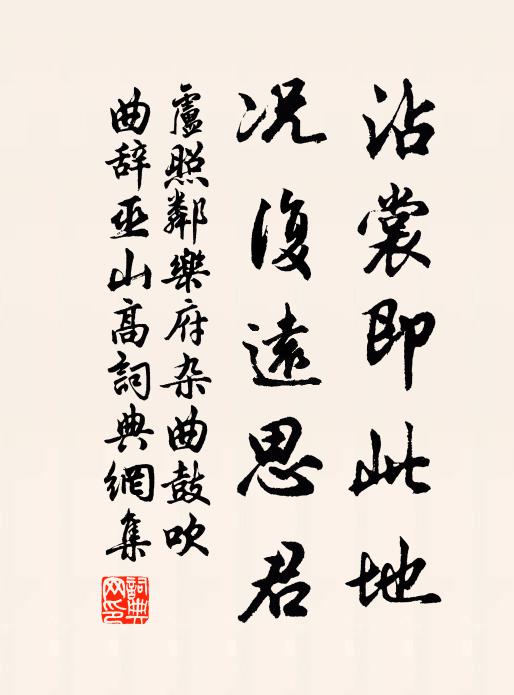 沾裳即此地
况復遠思君
盧照鄰樂府杂曲鼓吹
曲辞巫山高詞典網集
詞典网印